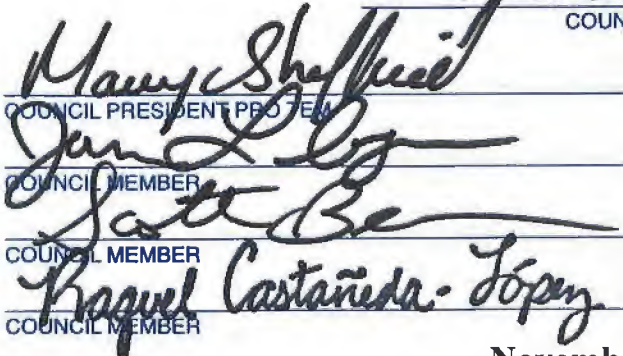 COUN
Mary Sheffield
COUNCIL PRESIDENT PRO TEM
COUNCIL MEMBER
Scott
COUNCIL MEMBER
Raquel Castañeda-López
COUNCIL MEMBER
Novemb